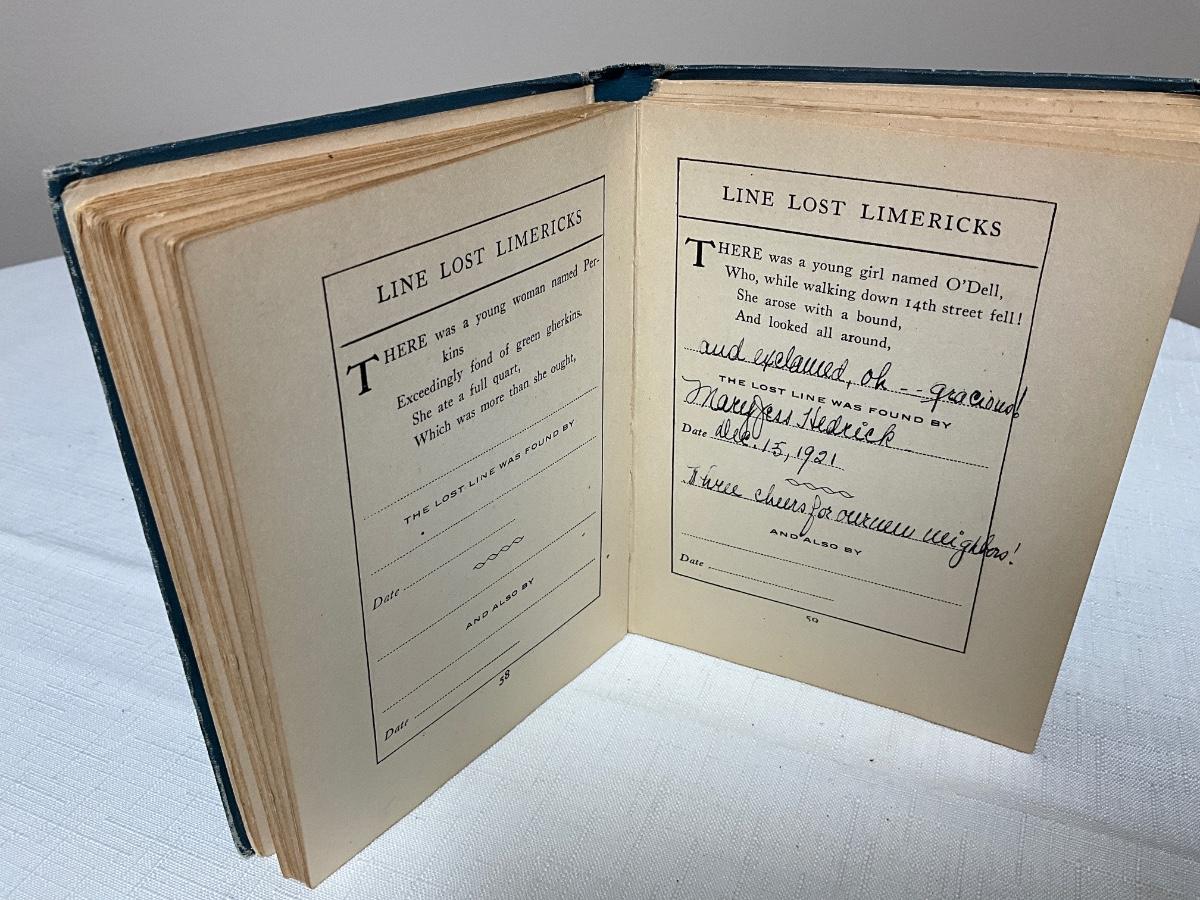 LINE LOST LIMERICKS
THERE was a young woman named Per-
kins
Exceedingly fond of green gherkins.
She ate a full quart,
Which was more than she ought,
THE LOST LINE WAS FOUND BY
Date
AND ALSO BY
Date
58
LINE LOST LIMERICKS
THERE was a young girl named O'Dell,
Who, while walking down 14th street fell!
She arose with a bound,
And looked all around,
and exclaimed, oh -- gracious!
THE LOST LINE WAS FOUND BY
Mary Jess Hedrick
Date Dec. 15, 1921
Three cheers for our new neighbors!
AND ALSO BY
Date
59